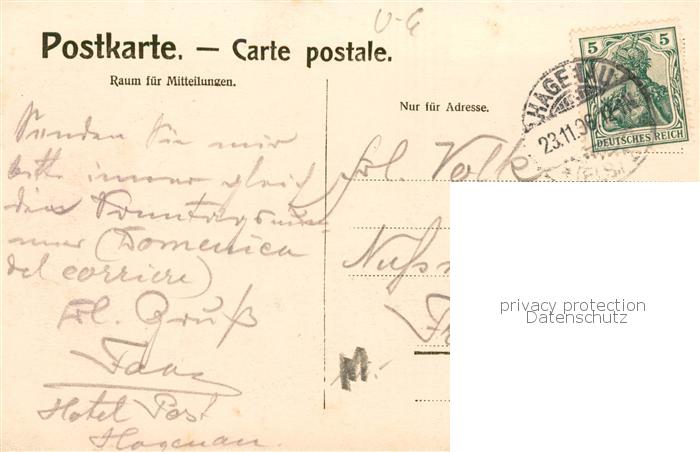 U-G
Postkarte. — Carte postale.
Raum für Mitteilungen.
Nur für Adresse.
5 5
DEUTSCHES REICH
HAGENAU
23.11.06
(ELS.)
Senden Sie mir
bitte immer gleich
die Sonntagsnum-
mer (Domenica
del corriere)
Frl. Gruß
Hotel Post
Hagenau.
Frl. Volk
Nuß
M.
privacy protection
Datenschutz